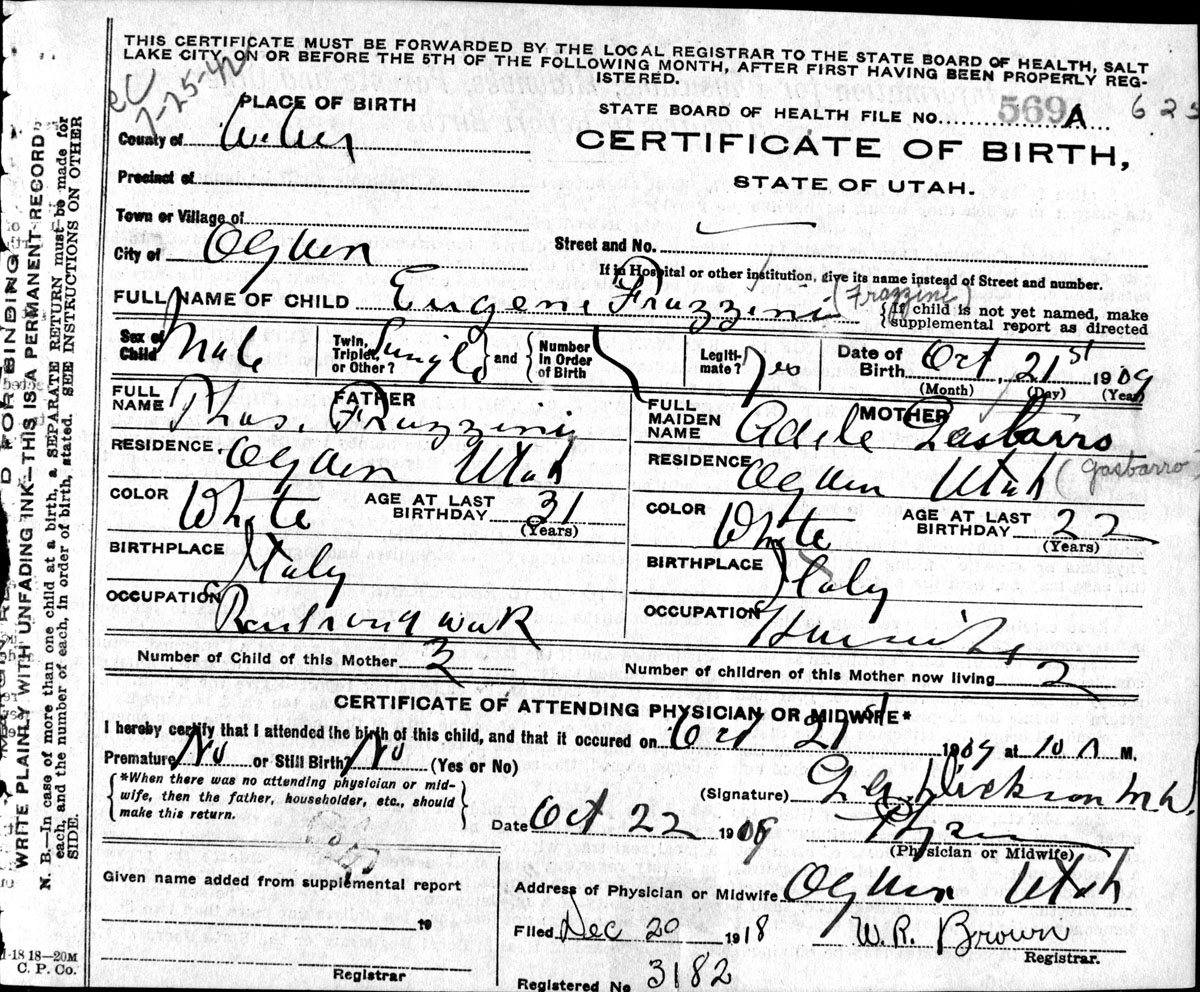 THIS CERTIFICATE MUST BE FORWARDED BY THE LOCAL REGISTRAR TO THE STATE BOARD OF HEALTH, SALT
LAKE CITY, ON OR BEFORE THE 5TH OF THE FOLLOWING MONTH, AFTER FIRST HAVING BEEN PROPERLY REG-
ISTERED.
7-25-42
PLACE OF BIRTH
STATE BOARD OF HEALTH FILE NO. 569A 625
County of Weber
CERTIFICATE OF BIRTH,
STATE OF UTAH.
Precinct of
Town or Village of
City of Ogden
Street and No.
If in Hospital or other institution, give its name instead of Street and number.
FULL NAME OF CHILD Eugene Frazzini (Frazzini) {If child is not yet named, make
supplemental report as directed
Sex of Child Male Twin, Triplet, or Other? Single } and { Number in Order of Birth Legiti-mate? Yes Date of Birth Oct, 21st 1909
(Month) (Day) (Year)
FATHER
FULL NAME Thos. Frazzini
MOTHER
FULL MAIDEN NAME Adele Gasbarro
RESIDENCE Ogden Utah
RESIDENCE Ogden Utah (Gasbarro)
COLOR White AGE AT LAST BIRTHDAY 31 (Years)
COLOR White AGE AT LAST BIRTHDAY 22 (Years)
BIRTHPLACE Italy
BIRTHPLACE Italy
OCCUPATION Railroad work
OCCUPATION Housewife
Number of Child of this Mother 3
Number of children of this Mother now living 2
CERTIFICATE OF ATTENDING PHYSICIAN OR MIDWIFE*
I hereby certify that I attended the birth of this child, and that it occured on Oct 21st 1909 at 10 A M.
Premature No or Still Birth? No (Yes or No)
{ *When there was no attending physician or mid-
wife, then the father, householder, etc., should
make this return. }
(Signature) Dickson M D
Date Oct 22 1909
(Physician or Midwife)
Given name added from supplemental report
Address of Physician or Midwife Ogden Utah
19
Filed Dec 20 1918 W. R. Brown
Registrar.
Registrar
Registered No 3182
1-18 18—20M
C. P. Co.
WRITE PLAINLY WITH UNFADING INK—THIS IS A PERMANENT RECORD
N. B.—In case of more than one child at a birth, a SEPARATE RETURN must be made for
each, and the number of each, in order of birth, stated. SEE INSTRUCTIONS ON OTHER
SIDE.